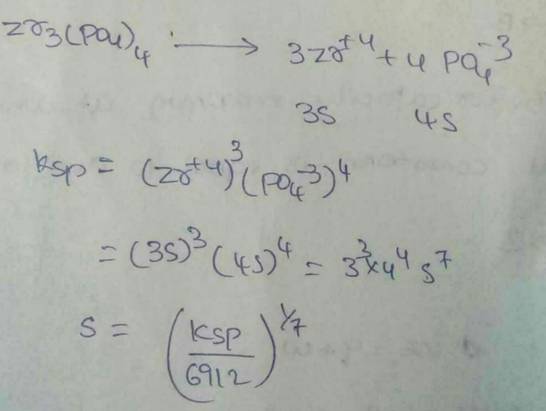 Zr₃(PO₄)₄ ⟶ 3Zr⁺⁴ + 4 PO₄⁻³
3S 4S
Ksp = (Zr⁺⁴)³ (PO₄⁻³)⁴
= (3S)³ (4S)⁴ = 3³×4⁴ S⁷
S = (Ksp/6912)^1/7